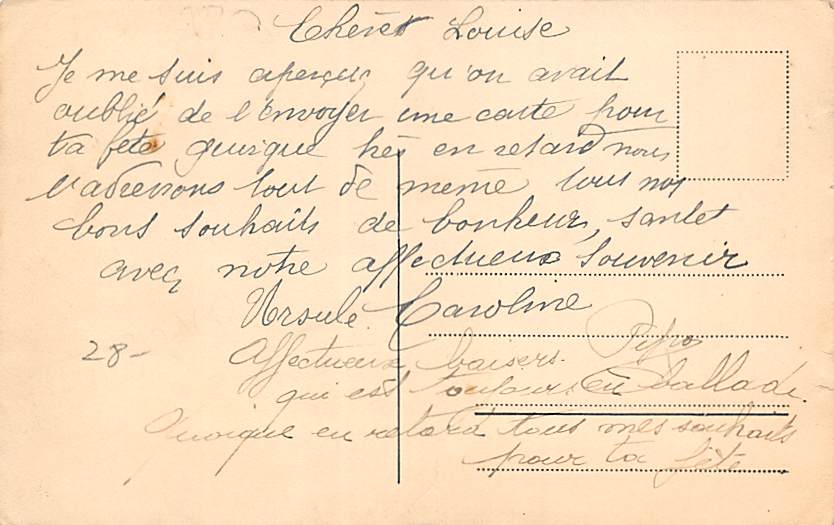 Chère Louise
Je me suis aperçue qu'on avait
oublié de t'envoyer une carte pour
ta fête quoique très en retard nous
t'adressons tout de même tous nos
bons souhaits de bonheur, santet
avec notre affectueux souvenir
Ursule Caroline
28- Affectueux baisers.
qui est toujours en ballade.
Quoique en retard tous mes souhaits
pour ta fête